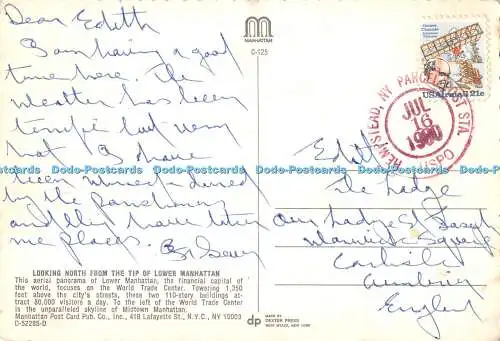 Dear Edith
I am having a good
time here. The
weather has been
terrific but very
hot I have
been
by the parishioners
and they have taken
me places.
MANHATTAN
C-125
USAirmail 21c
HEMPSTEAD, NY PARCEL POST STA.
JUL
16
1980
USPO
Dodo-Postcards Dodo-Postcards Dodo-Postcards Dodo-Postcards Dodo-Postcards
Edith
The Lodge
Our Lady & St Joseph
Warwick Square
Carlisle
Cumbria
England
LOOKING NORTH FROM THE TIP OF LOWER MANHATTAN
This aerial panorama of Lower Manhattan, the financial capital of
the world, focuses on the World Trade Center. Towering 1,350
feet above the city's streets, these two 110-story buildings at-
tract 80,000 visitors a day. To the left of the World Trade Center
is the unparalleled skyline of Midtown Manhattan.
Manhattan Post Card Pub. Co., Inc., 418 Lafayette St., N.Y.C., NY 10003
D-52285-D
dp
MADE BY
DEXTER PRESS
WEST NYACK, NEW YORK